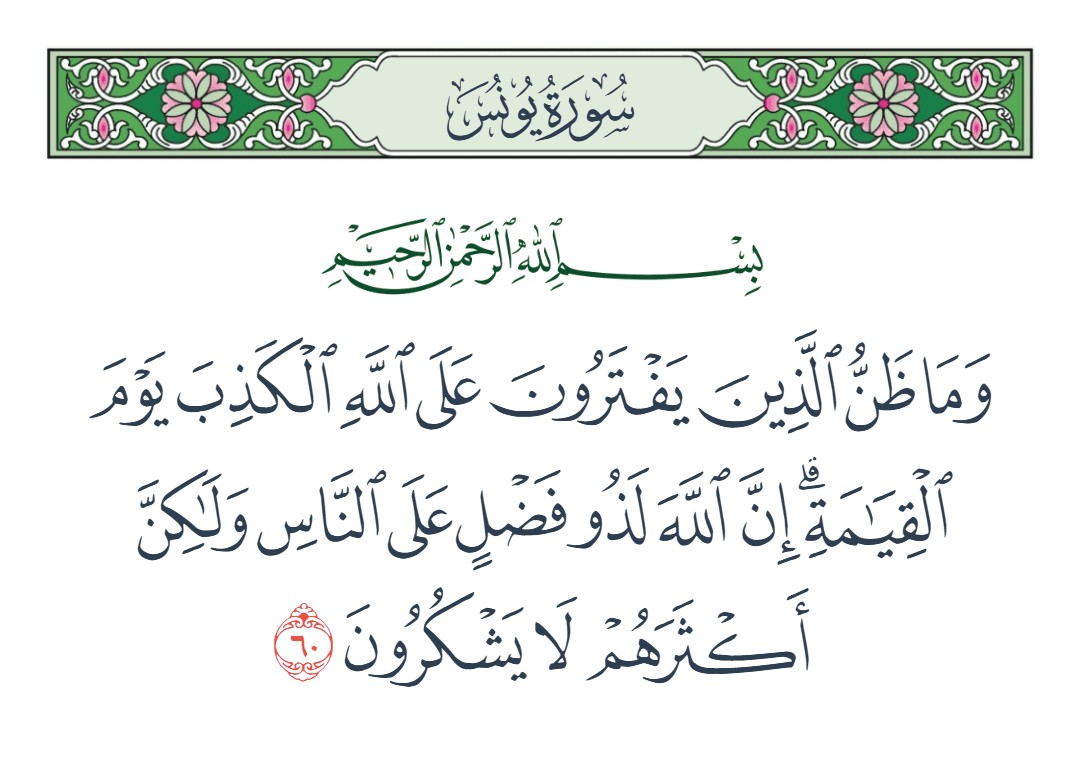 سُورَةُ يُونُسَ
بِسْمِ ٱللَّهِ ٱلرَّحْمَٰنِ ٱلرَّحِيمِ
وَمَا ظَنُّ ٱلَّذِينَ يَفْتَرُونَ عَلَى ٱللَّهِ ٱلْكَذِبَ يَوْمَ
ٱلْقِيَٰمَةِ ۗ إِنَّ ٱللَّهَ لَذُو فَضْلٍ عَلَى ٱلنَّاسِ وَلَٰكِنَّ
أَكْثَرَهُمْ لَا يَشْكُرُونَ ٦٠